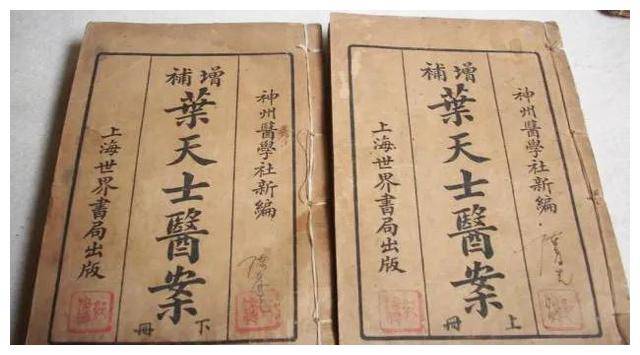 神州醫學社新編
增補
葉天士醫案
上冊
上海世界書局出版
神州醫學社新編
增補
葉天士醫案
下冊
上海世界書局出版